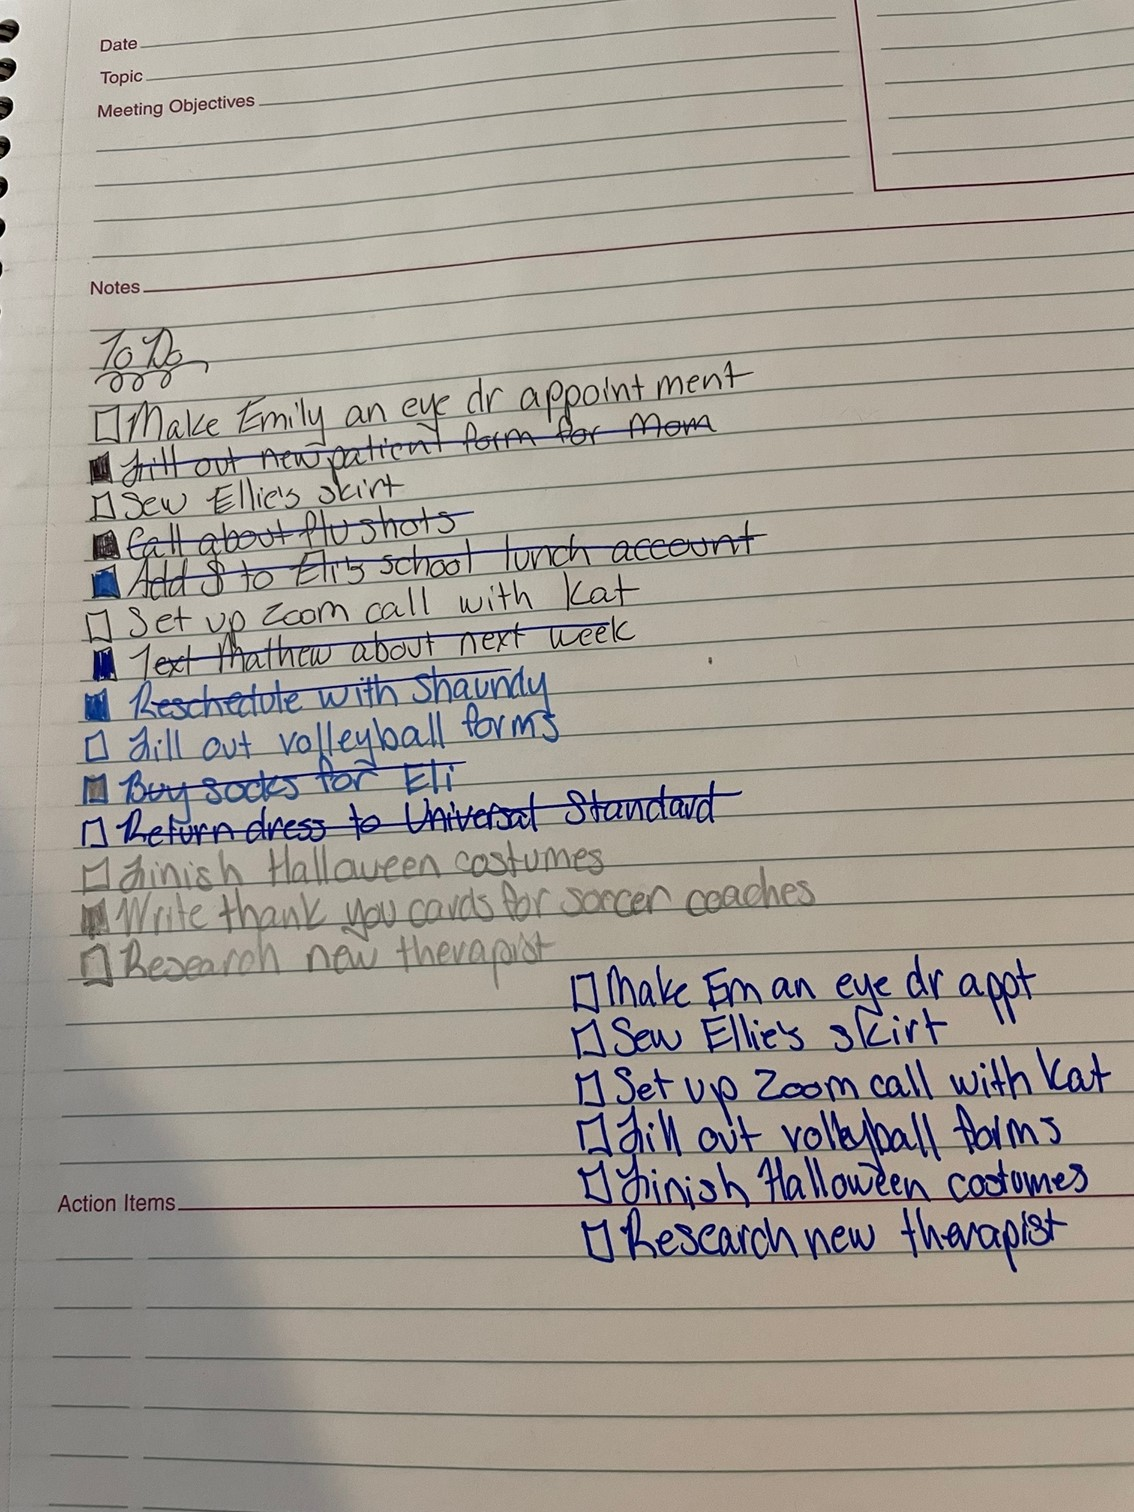 Date
Topic
Meeting Objectives
Notes
To Do
Make Emily an eye dr appointment
Fill out new patient form for Mom
Sew Ellie's skirt
Call about flu shots
Add $ to Eli's school lunch account
Set up Zoom call with Kat
Text Mathew about next week
Reschedule with Shaundy
Fill out volleyball forms
Buy socks for Eli
Return dress to Universal Standard
Finish Halloween costumes
Write thank you cards for soccer coaches
Research new therapist
Make Em an eye dr appt
Sew Ellie's skirt
Set up Zoom call with Kat
Fill out volleyball forms
Finish Halloween costumes
Research new therapist
Action Items